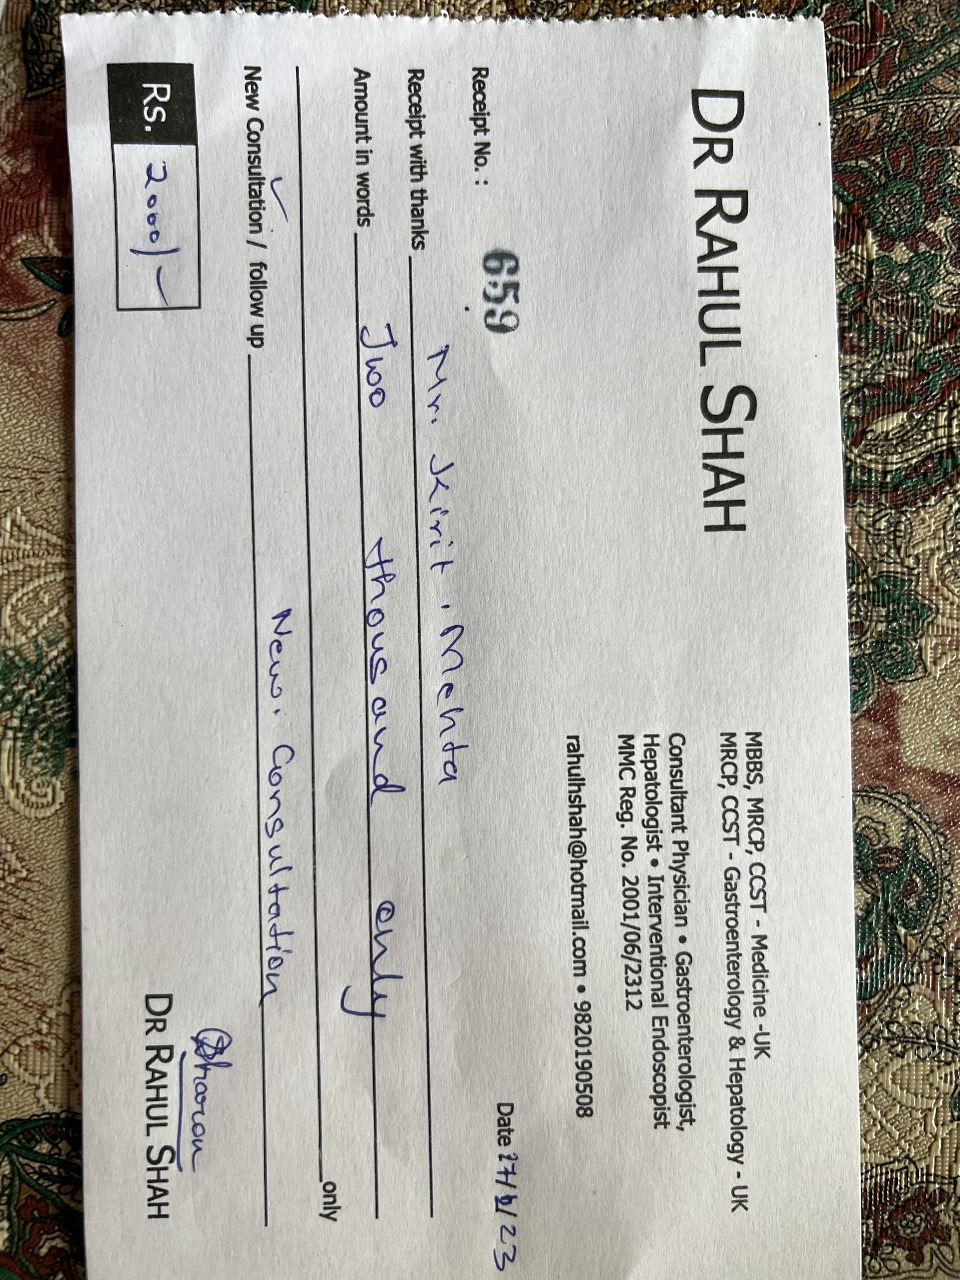 DR RAHUL SHAH
MBBS, MRCP, CCST - Medicine -UK
MRCP, CCST - Gastroenterology & Hepatology - UK
Consultant Physician • Gastroenterologist,
Hepatologist • Interventional Endoscopist
MMC Reg. No. 2001/06/2312
rahulhshah@hotmail.com • 9820190508
Receipt No. : 659 Date /23
Receipt with thanks Mr. Kirit . Mehta
Amount in words Two thousand only
only
New Consultation / follow up New. Consultation
Rs. 2000/-
DR RAHUL SHAH